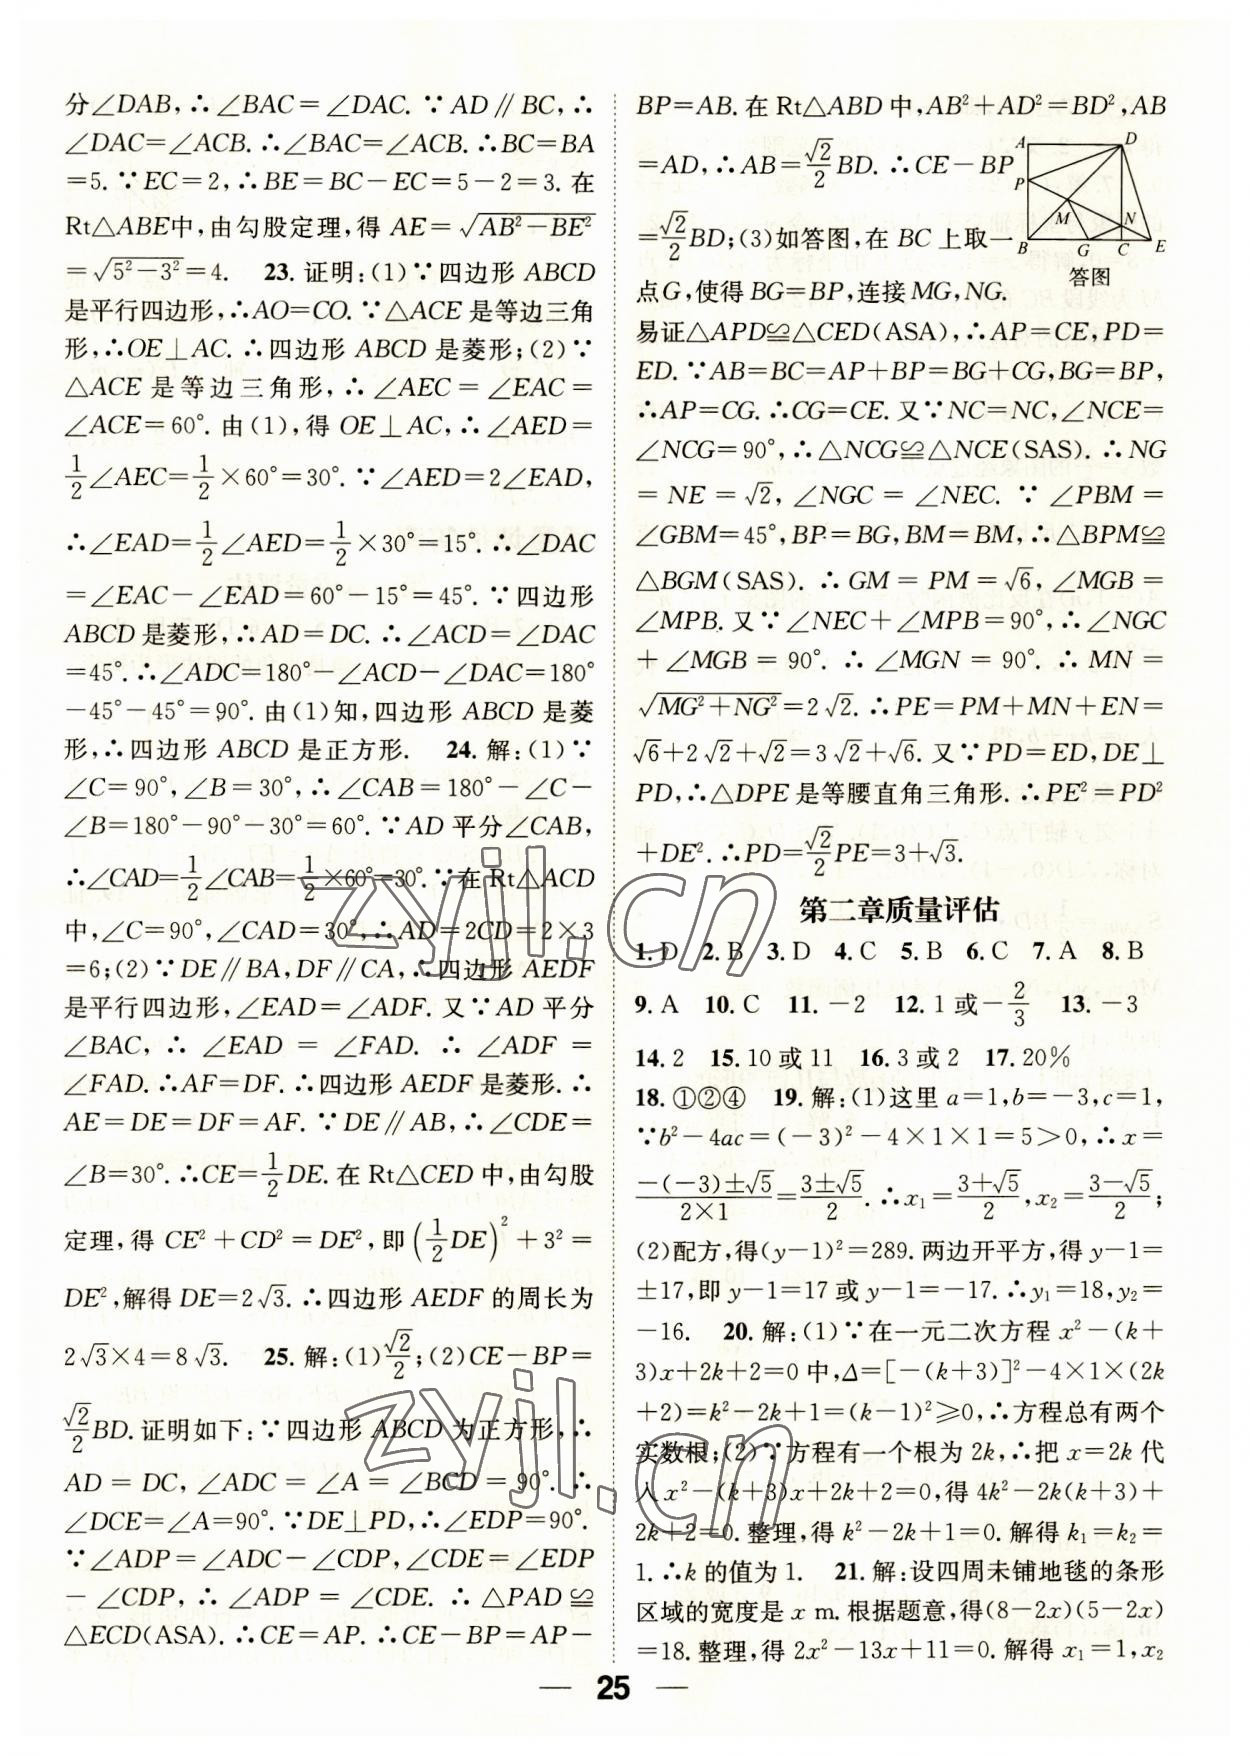 分∠DAB,∴∠BAC=∠DAC.∵AD∥BC,∴
∠DAC=∠ACB.∴∠BAC=∠ACB.∴BC=BA
=5.∵EC=2,∴BE=BC-EC=5-2=3.在
Rt△ABE中,由勾股定理,得 AE=√(AB²-BE²)
=√(5²-3²)=4. 23.证明:(1)∵四边形 ABCD
是平行四边形,∴AO=CO.∵△ACE是等边三角
形,∴OE⊥AC.∴四边形 ABCD 是菱形;(2)∵
△ACE 是等边三角形,∴∠AEC=∠EAC=
∠ACE=60°.由(1),得 OE⊥AC,∴∠AED=
1/2∠AEC=1/2×60°=30°.∵∠AED=2∠EAD,
∴∠EAD=1/2∠AED=1/2×30°=15°.∴∠DAC
=∠EAC-∠EAD=60°-15°=45°.∵四边形
ABCD是菱形,∴AD=DC.∴∠ACD=∠DAC
=45°.∴∠ADC=180°-∠ACD-∠DAC=180°
-45°-45°=90°.由(1)知,四边形 ABCD 是菱
形,∴四边形 ABCD 是正方形. 24.解:(1)∵
∠C=90°,∠B=30°,∴∠CAB=180°-∠C-
∠B=180°-90°-30°=60°.∵AD 平分∠CAB,
∴∠CAD=1/2∠CAB=1/2×60°=30°.∵在 Rt△ACD
中,∠C=90°,∠CAD=30°,∴AD=2CD=2×3
=6;(2)∵DE∥BA,DF∥CA,∴四边形 AEDF
是平行四边形,∠EAD=∠ADF.又∵AD 平分
∠BAC,∴∠EAD=∠FAD.∴∠ADF=
∠FAD.∴AF=DF.∴四边形AEDF是菱形.∴
AE=DE=DF=AF.∵DE∥AB,∴∠CDE=
∠B=30°.∴CE=1/2DE.在 Rt△CED 中,由勾股
定理,得 CE²+CD²=DE²,即(1/2DE)²+3²=
DE²,解得 DE=2√3.∴四边形 AEDF 的周长为
2√3×4=8√3. 25.解:(1)√2/2;(2)CE-BP=
√2/2BD.证明如下:∵四边形 ABCD 为正方形,∴
AD=DC,∠ADC=∠A=∠BCD=90°.∴
∠DCE=∠A=90°.∵DE⊥PD,∴∠EDP=90°.
∵∠ADP=∠ADC-∠CDP,∠CDE=∠EDP
-∠CDP,∴∠ADP=∠CDE.∴△PAD≌
△ECD(ASA).∴CE=AP.∴CE-BP=AP-
BP=AB.在 Rt△ABD 中,AB²+AD²=BD²,AB
=AD,∴AB=√2/2BD.∴CE-BP
=√2/2BD;(3)如答图,在 BC 上取一
点G,使得 BG=BP,连接 MG,NG.
A D P M N B G C E
答图
易证△APD≌△CED(ASA),∴AP=CE,PD=
ED.∵AB=BC=AP+BP=BG+CG,BG=BP,
∴AP=CG.∴CG=CE.又∵NC=NC,∠NCE=
∠NCG=90°,∴△NCG≌△NCE(SAS).∴NG
=NE=√2,∠NGC=∠NEC.∵∠PBM=
∠GBM=45°,BP=BG,BM=BM,∴△BPM≌
△BGM(SAS).∴GM=PM=√6,∠MGB=
∠MPB.又∵∠NEC+∠MPB=90°,∴∠NGC
+∠MGB=90°.∴∠MGN=90°.∴MN=
√(MG²+NG²)=2√2.∴PE=PM+MN+EN=
√6+2√2+√2=3√2+√6.又∵PD=ED,DE⊥
PD,∴△DPE是等腰直角三角形.∴PE²=PD²
+DE².∴PD=√2/2PE=3+√3.
第二章质量评估
1.D 2.B 3.D 4.C 5.B 6.C 7.A 8.B
9.A 10.C 11.-2 12.1或-2/3 13.-3
14.2 15.10或11 16.3或2 17.20%
18.①②④ 19.解:(1)这里 a=1,b=-3,c=1,
∵b²-4ac=(-3)²-4×1×1=5>0,∴x=
(-(-3)±√5)/(2×1)=(3±√5)/2.∴x₁=(3+√5)/2,x₂=(3-√5)/2;
(2)配方,得(y-1)²=289.两边开平方,得 y-1=
±17,即 y-1=17 或 y-1=-17.∴y₁=18,y₂=
-16. 20.解:(1)∵在一元二次方程 x²-(k+
3)x+2k+2=0中,Δ=[-(k+3)]²-4×1×(2k
+2)=k²-2k+1=(k-1)²≥0,∴方程总有两个
实数根;(2)∵方程有一个根为 2k,∴把 x=2k 代
入 x²-(k+3)x+2k+2=0,得 4k²-2k(k+3)+
2k+2=0.整理,得 k²-2k+1=0.解得 k₁=k₂=
1.∴k的值为 1. 21.解:设四周未铺地毯的条形
区域的宽度是 x m.根据题意,得(8-2x)(5-2x)
=18.整理,得 2x²-13x+11=0.解得 x₁=1,x₂
— 25 —
zyjl.cn
zyjl.cn